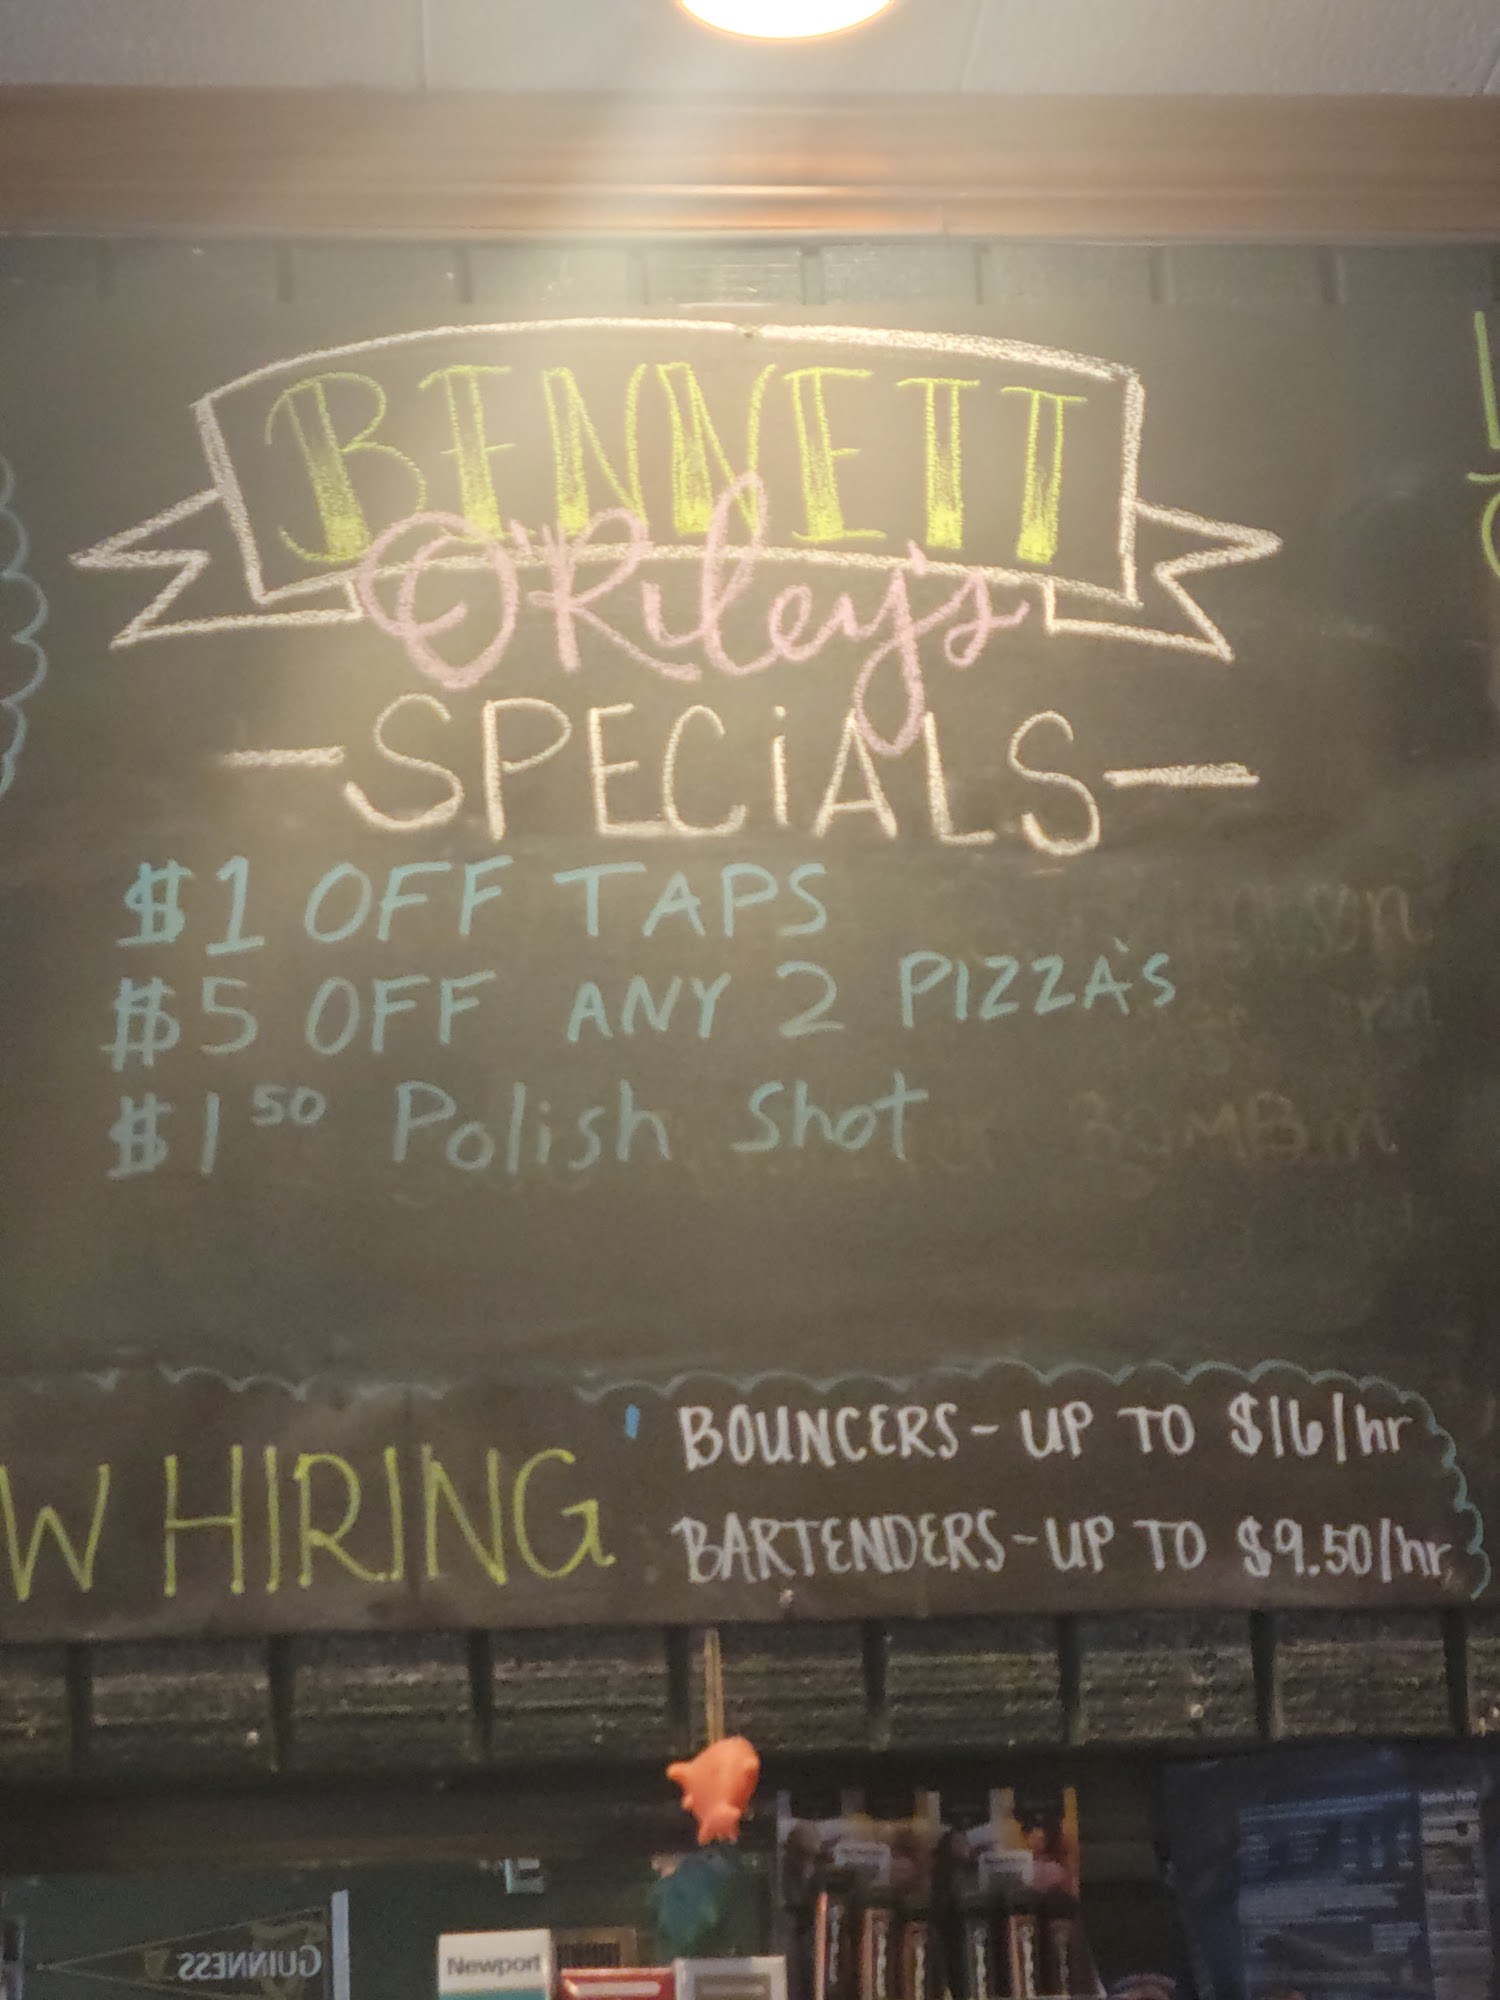 BENNETT
O'Riley's
-SPECiALS-
$1 OFF TAPS
$5 OFF ANY 2 PIZZA'S
$1 50 Polish Shot
W HIRING
BOUNCERS- UP TO $16/hr
BARTENDERS-UP TO $9.50/hr
GUINNESS
Newport